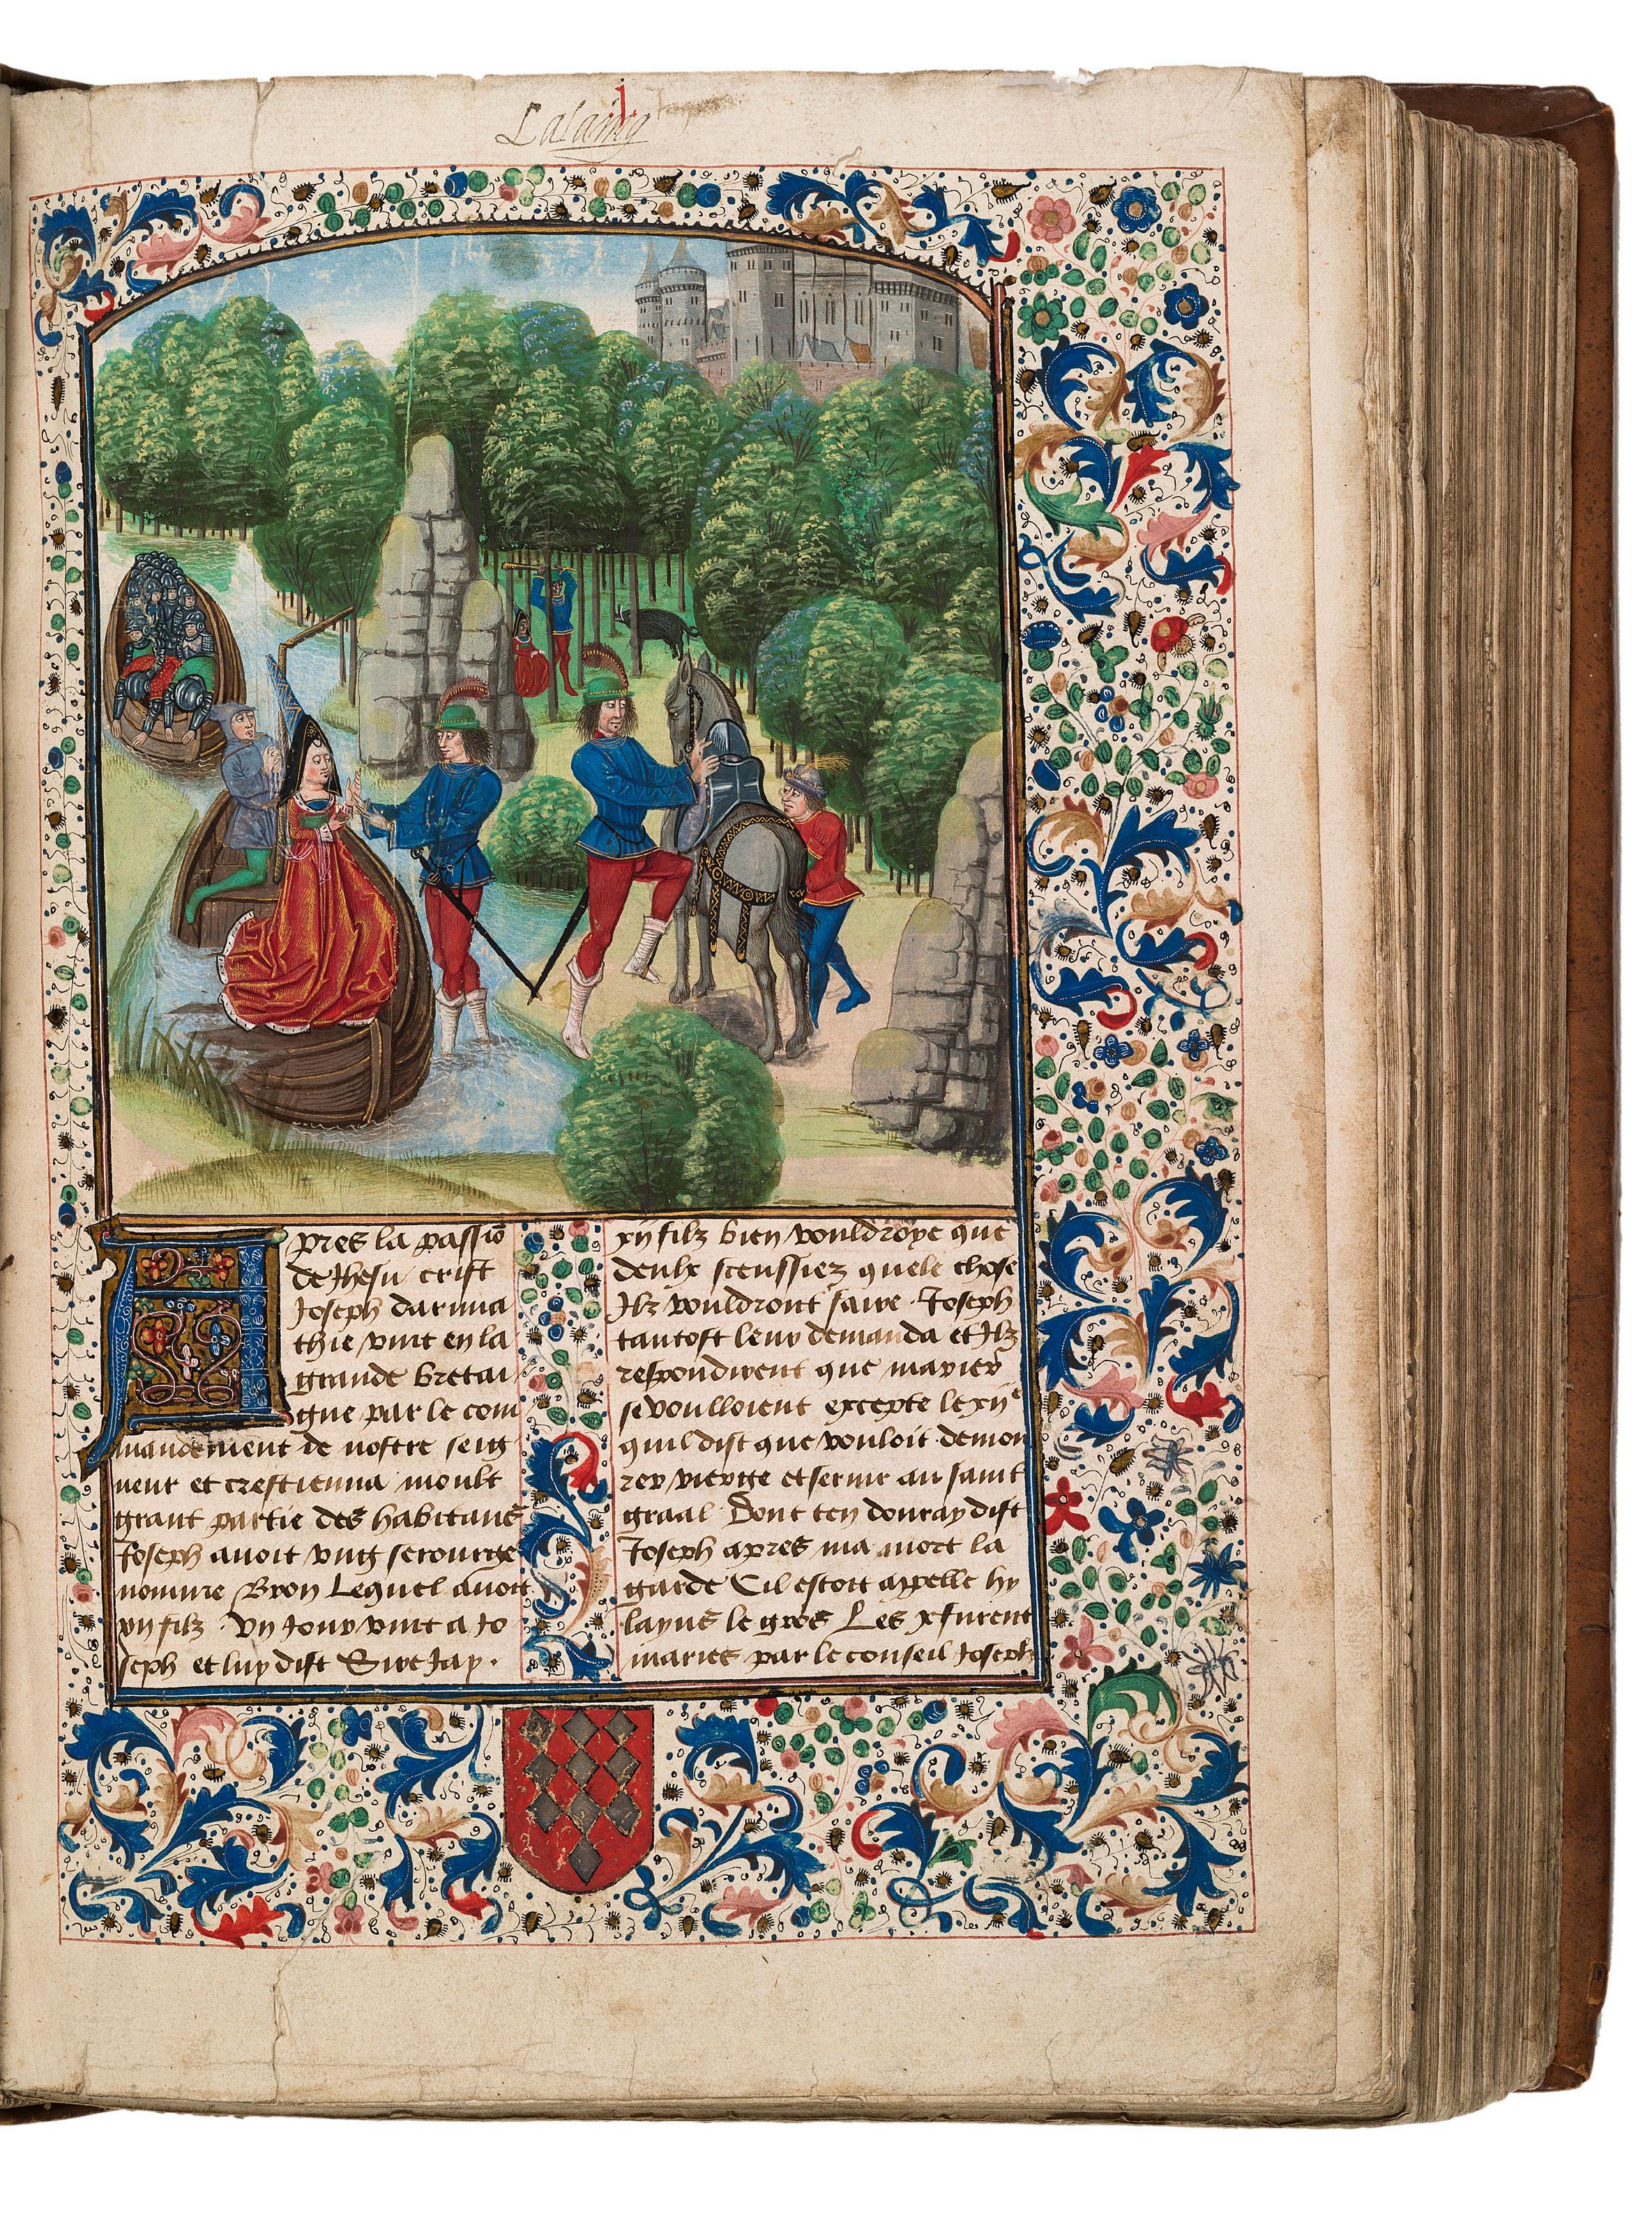 Lalaing
j.
Apres la passiō
de Jhesu crist
Joseph darima
thie vint en la
grande bretai
gne par le com
mandement de nostre seig
neur et crestienna moult
grant partie des habitans
Joseph avoit vng serourge
nomme Bron Lequel avoit
xij filz . Vn Jour vint a Jo
seph et luy dist Sire Jay .
xij filz bien vouldroye que
deulx sceussiez quele chose
Ilz vouldront faire . Joseph
tantost leur demanda et Ilz
respondirent que marier
se voulloient excepte le xije
quil dist que vouloit demou
rer vierge et servir au saint
graal Dont ten douray dist
Joseph apres ma mort la
garde Cil estoit appelle hy
layns le gros Les x furent
maries par le conseil Joseph